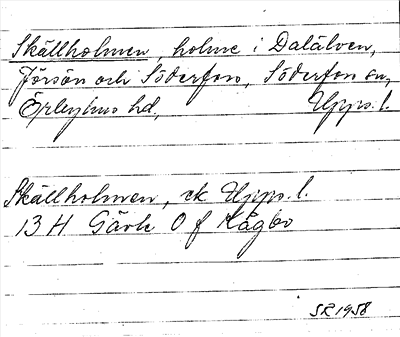 Skällholmen, holme i Dalälven,
Jörsön och Söderfors, Söderfors sn,
Örbyhus hd, Upps. l.
Skällholmen, ek Upps. l.
13 H Gävle O f Kågbo
SR 1958